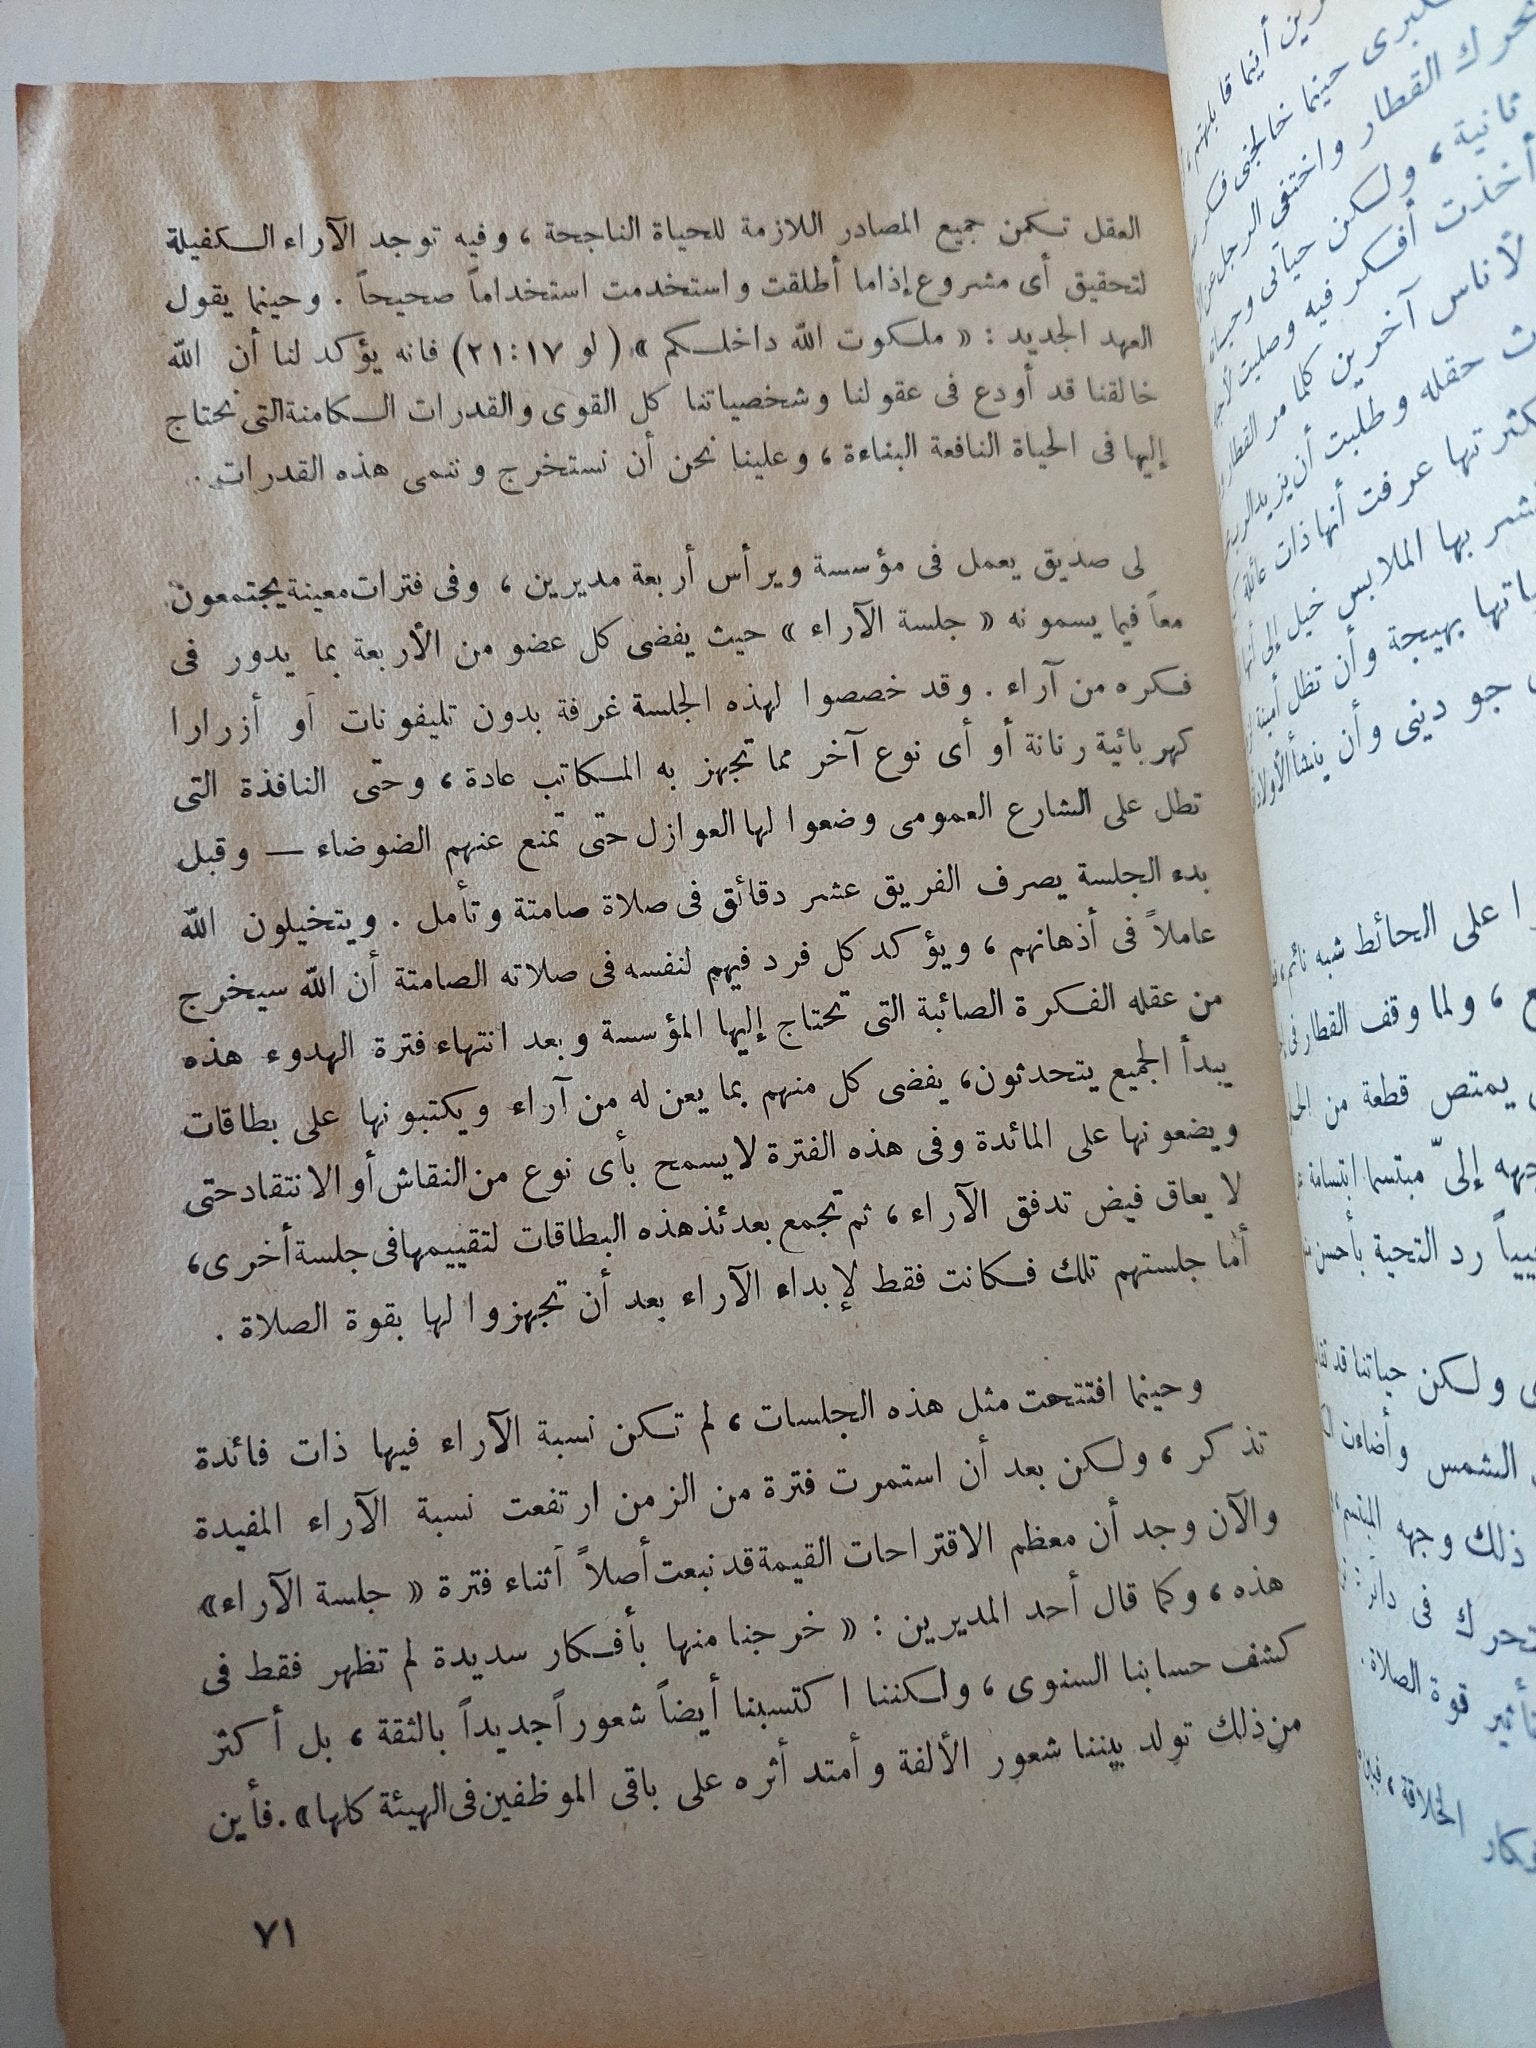 العقل تكمن جميع المصادر اللازمة للحياة الناجحة ، وفيه توجد الآراء الكفيلة
لتحقيق أى مشروع إذاما أطلقت واستخدمت استخداماً صحيحاً . وحينما يقول
العهد الجديد : « ملكوت الله داخلكم » ( لو ١٧ : ٢١ ) فانه يؤكد لنا أن الله
خالقنا قد أودع فى عقولنا وشخصياتنا كل القوى والقدرات الكامنة التى نحتاج
إليها فى الحياة النافعة البناءة ، وعلينا نحن أن نستخرج وننمى هذه القدرات .
لى صديق يعمل فى مؤسسة ويرأس أربعة مديرين ، وفى فترات معينة يجتمعون
معاً فيما يسمونه « جلسة الآراء » حيث يفضى كل عضو من الأربعة بما يدور فى
فكره من آراء . وقد خصصوا لهذه الجلسة غرفة بدون تليفونات أو أزرارا
كهربائية رنانة أو أى نوع آخر مما تجهز به المكاتب عادة ، وحتى النافذة التى
تطل على الشارع العمومى وضعوا لها العوازل حتى تمنع عنهم الضوضاء — وقبل
بدء الجلسة يصرف الفريق عشر دقائق فى صلاة صامتة وتأمل . ويتخيلون الله
عاملاً فى أذهانهم ، ويؤكد كل فرد فيهم لنفسه فى صلاته الصامتة أن الله سيخرج
من عقله الفكرة الصائبة التى تحتاج إليها المؤسسة وبعد انتهاء فترة الهدوء هذه
يبدأ الجميع يتحدثون ، يفضى كل منهم بما يعن له من آراء ويكتبونها على بطاقات
ويضعونها على المائدة وفى هذه الفترة لايسمح بأى نوع من النقاش أو الانتقاد حتى
لا يعاق فيض تدفق الآراء ، ثم تجمع بعدئذ هذه البطاقات لتقييمها فى جلسة أخرى ،
أما جلستهم تلك فكانت فقط لإبداء الآراء بعد أن تجهزوا لها بقوة الصلاة .
وحينما افتتحت مثل هذه الجلسات ، لم تكن نسبة الآراء فيها ذات فائدة
تذكر ، ولكن بعد أن استمرت فترة من الزمن ارتفعت نسبة الآراء المفيدة
والآن وجد أن معظم الاقتراحات القيمة قد نبعت أصلاً أثناء فترة « جلسة الآراء »
هذه ، وكما قال أحد المديرين : « خرجنا منها بأفكار سديدة لم تظهر فقط فى
كشف حسابنا السنوى ، ولكننا اكتسبنا أيضاً شعوراً جديداً بالثقة ، بل أكثر
من ذلك تولد بيننا شعور الألفة وأمتد أثره على باقى الموظفين فى الهيئة كلها » . فأين
٧١
أينما قابلتهم
حينما خالجنى
تحرك القطار واختفى الرجل
ثانية ، ولكن حياتى
أخذت أفكر فيه وصليت
لأناس آخرين كلما مر القطار
حقله وطلبت أن يزيد
عرفت أنها ذات
بها الملابس خيل إلى
بهيجة وأن تظل أمينة
جو دينى وأن ينشأ
على الحائط شبه نائم
، ولما وقف القطار
يمتص قطعة من
إلىّ مبتسما ابتسامة
رد التحية بأحسن
ولكن حياتنا قد
الشمس وأضاءت
ذلك وجهه
فى
قوة الصلاة .
الخلاقة ،